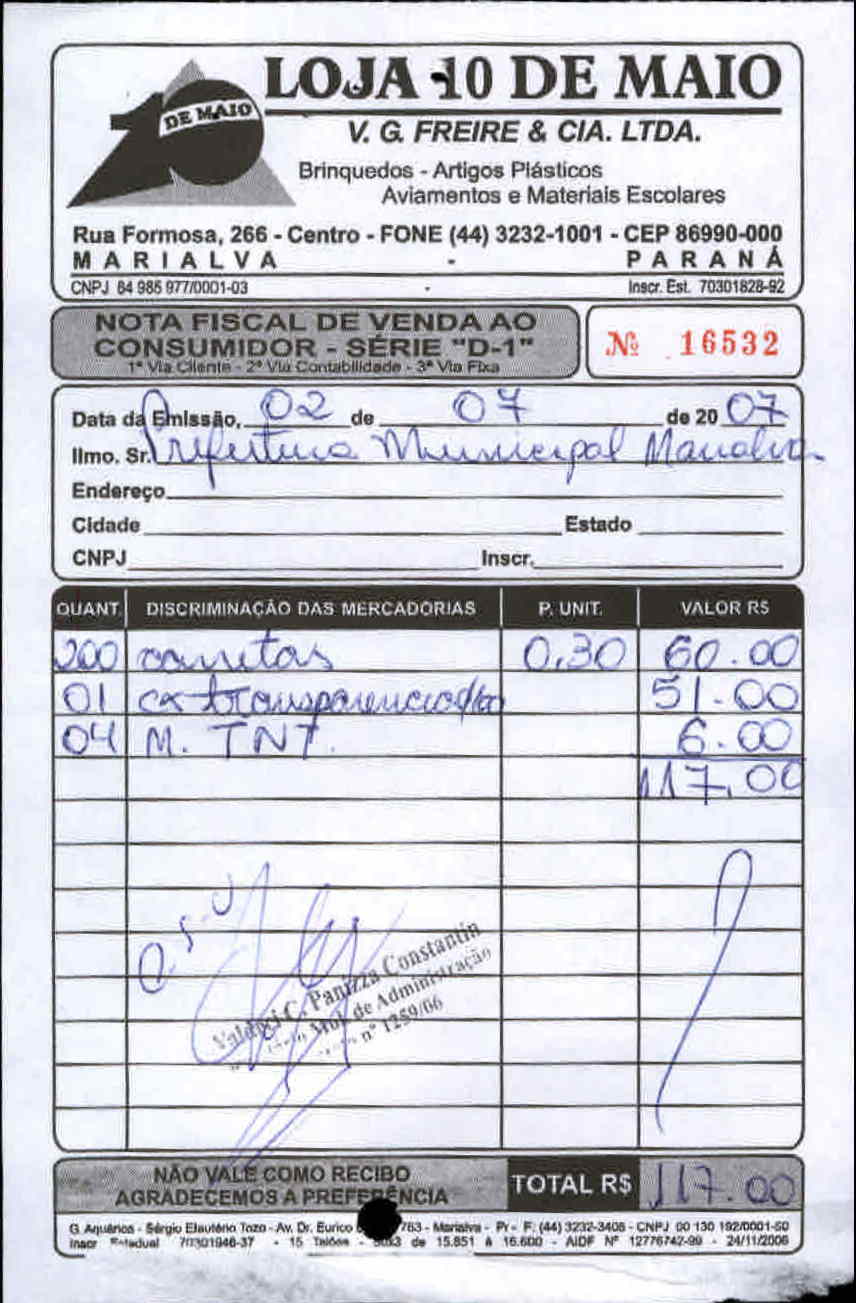 LOJA 10 DE MAIO
10 DE MAIO
V. G. FREIRE & CIA. LTDA.
Brinquedos - Artigos Plásticos
Aviamentos e Materiais Escolares
Rua Formosa, 266 - Centro - FONE (44) 3232-1001 - CEP 86990-000
MARIALVA - PARANÁ
CNPJ 84 985 977/0001-03 Inscr. Est. 70301828-92
NOTA FISCAL DE VENDA AO
CONSUMIDOR - SÉRIE "D-1"
1ª Via Cliente - 2ª Via Contabilidade - 3ª Via Fixa
Nº 16532
Data da Emissão, 02 de 07 de 2007
Ilmo. Sr. Prefeitura Municipal Marialva
Endereço
Cidade Estado
CNPJ Inscr.
QUANT. DISCRIMINAÇÃO DAS MERCADORIAS P. UNIT. VALOR R$
200 canetas 0,30 60.00
01 cx transparencia 51.00
04 M. TNT. 6.00
117,00
C. Panizza Constantin
de Administração
nº 1259/06
NÃO VALE COMO RECIBO
AGRADECEMOS A PREFERÊNCIA
TOTAL R$ 117.00
G. Aquários - Sérgio Elautério Tozo - Av. Dr. Eurico 763 - Marialva - Pr - F. (44) 3232-3408 - CNPJ 00 130 192/0001-50
Inscr Estadual 70301946-37 - 15 Talões - de 15.851 à 16.600 - AIDF Nº 12776742-99 - 24/11/2006